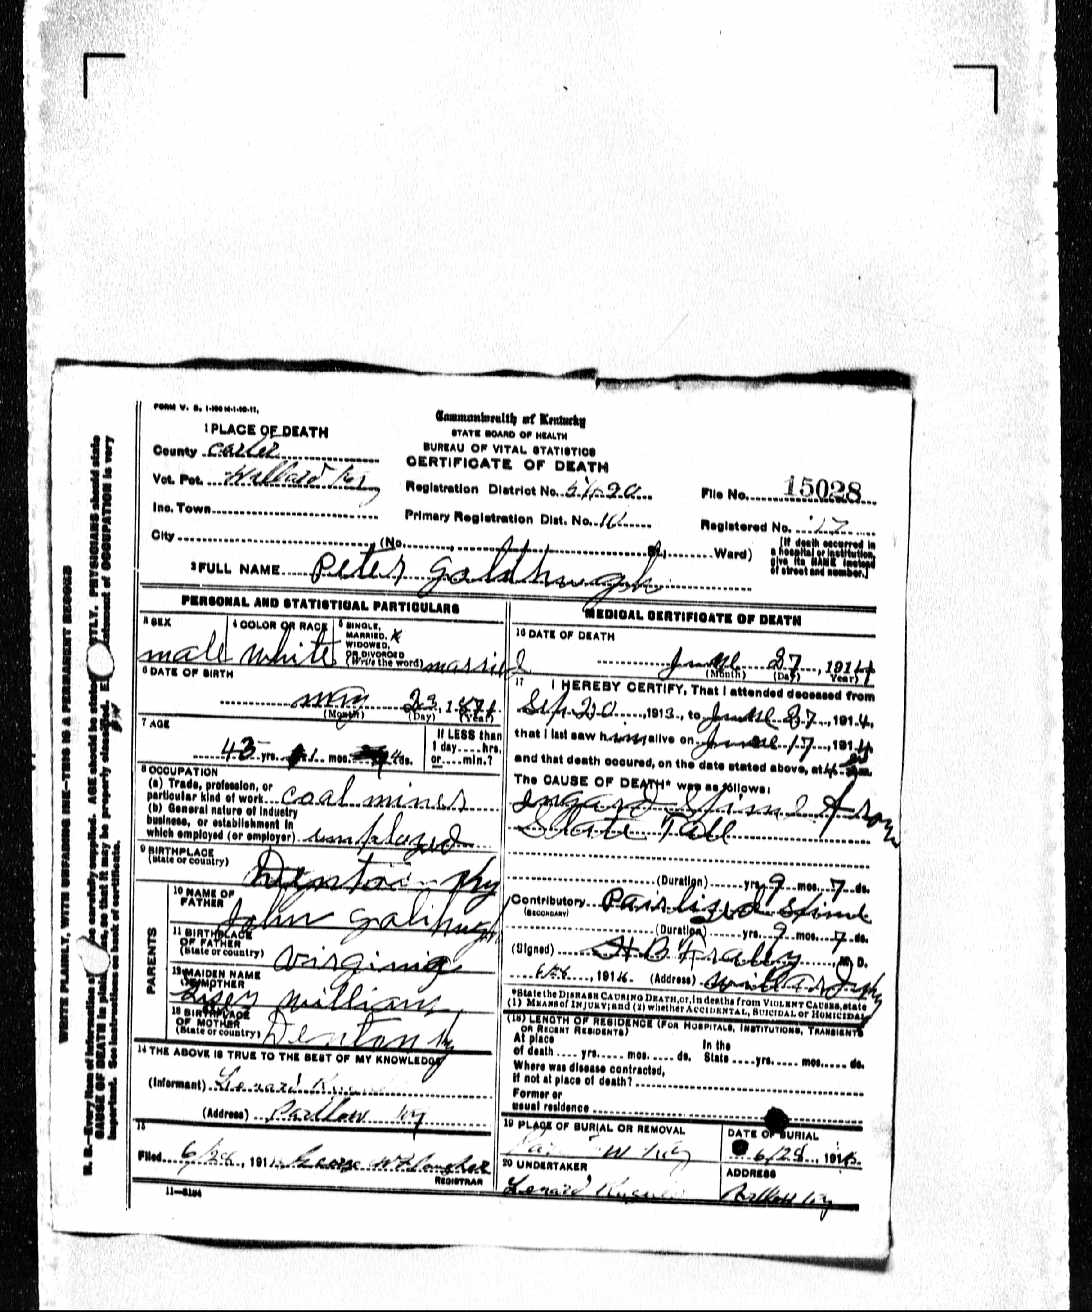 FORM V. S. 1-
Commonwealth of Kentucky
STATE BOARD OF HEALTH
BUREAU OF VITAL STATISTICS
CERTIFICATE OF DEATH
1 PLACE OF DEATH
County Carter
Vot. Pct. Willard Ky
Inc. Town
City
Registration District No.
Primary Registration Dist. No.
File No. 15028
Registered No. 17
(No. St.; Ward)
[If death occurred in a hospital or institution, give its NAME instead of street and number.]
2 FULL NAME Peter Goldhugh
PERSONAL AND STATISTICAL PARTICULARS
3 SEX
male
4 COLOR OR RACE
white
5 SINGLE, MARRIED, X WIDOWED, OR DIVORCED (Write the word) married
6 DATE OF BIRTH
May 23, 1871
(Month) (Day) (Year)
7 AGE
43 yrs. 1 mos. 4 ds.
If LESS than 1 day hrs. or min.?
8 OCCUPATION
(a) Trade, profession, or particular kind of work coal miner
(b) General nature of industry business, or establishment in which employed (or employer) employed
9 BIRTHPLACE (State or country) Denton Ky
PARENTS
10 NAME OF FATHER John
11 BIRTHPLACE OF FATHER (State or country) Virginia
12 MAIDEN NAME OF MOTHER
13 BIRTHPLACE OF MOTHER (State or country) Denton Ky
14 THE ABOVE IS TRUE TO THE BEST OF MY KNOWLEDGE
(Informant) Lenard
(Address) Partlow Ky
15
Filed 6/28, 191 George
REGISTRAR
11—5194
MEDICAL CERTIFICATE OF DEATH
16 DATE OF DEATH
June 27, 1914
(Month) (Day) (Year)
17 I HEREBY CERTIFY, That I attended deceased from
Sep 20, 1913, to June 27, 1914,
that I last saw him alive on June 17, 1914
and that death occured, on the date stated above, at 4 m.
The CAUSE OF DEATH* was as follows:
Ingard Spine from
Slate Fall
(Duration) yrs. 9 mos. 7 ds.
Contributory Parlized Spine
(SECONDARY)
(Duration) yrs. 9 mos. 7 ds.
(Signed) H B Fraley M. D.
6/28, 1914. (Address) Willard Ky
*State the DISEASE CAUSING DEATH, or, in deaths from VIOLENT CAUSES, state
(1) MEANS OF INJURY; and (2) whether ACCIDENTAL, SUICIDAL or HOMICIDAL
(18) LENGTH OF RESIDENCE (FOR HOSPITALS, INSTITUTIONS, TRANSIENTS OR RECENT RESIDENTS)
At place of death yrs. mos. ds. In the State yrs. mos. ds.
Where was disease contracted, if not at place of death?
Former or usual residence
19 PLACE OF BURIAL OR REMOVAL
DATE OF BURIAL
6/28, 191
20 UNDERTAKER
Lenard
ADDRESS
Ky
WRITE PLAINLY, WITH UNFADING INK—THIS IS A PERMANENT RECORD
N. B.—Every item of information should be carefully supplied. AGE should be stated EXACTLY. PHYSICIANS should state
CAUSE OF DEATH in plain terms, so that it may be properly classified. Exact statement of OCCUPATION is very
important. See instructions on back of certificate.